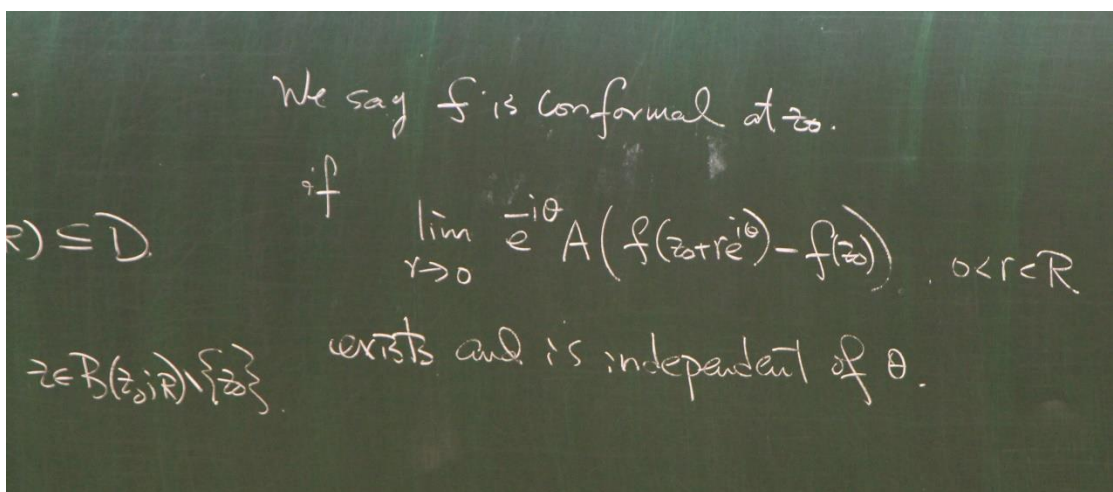 We say f is conformal at z₀.
if
lim_{r→0} e^{-iθ} A(f(z₀+re^{iθ})-f(z₀)), 0<r<R
R) ⊆ D.
exists and is independent of θ.
z∈B(z₀;R)\{z₀}.